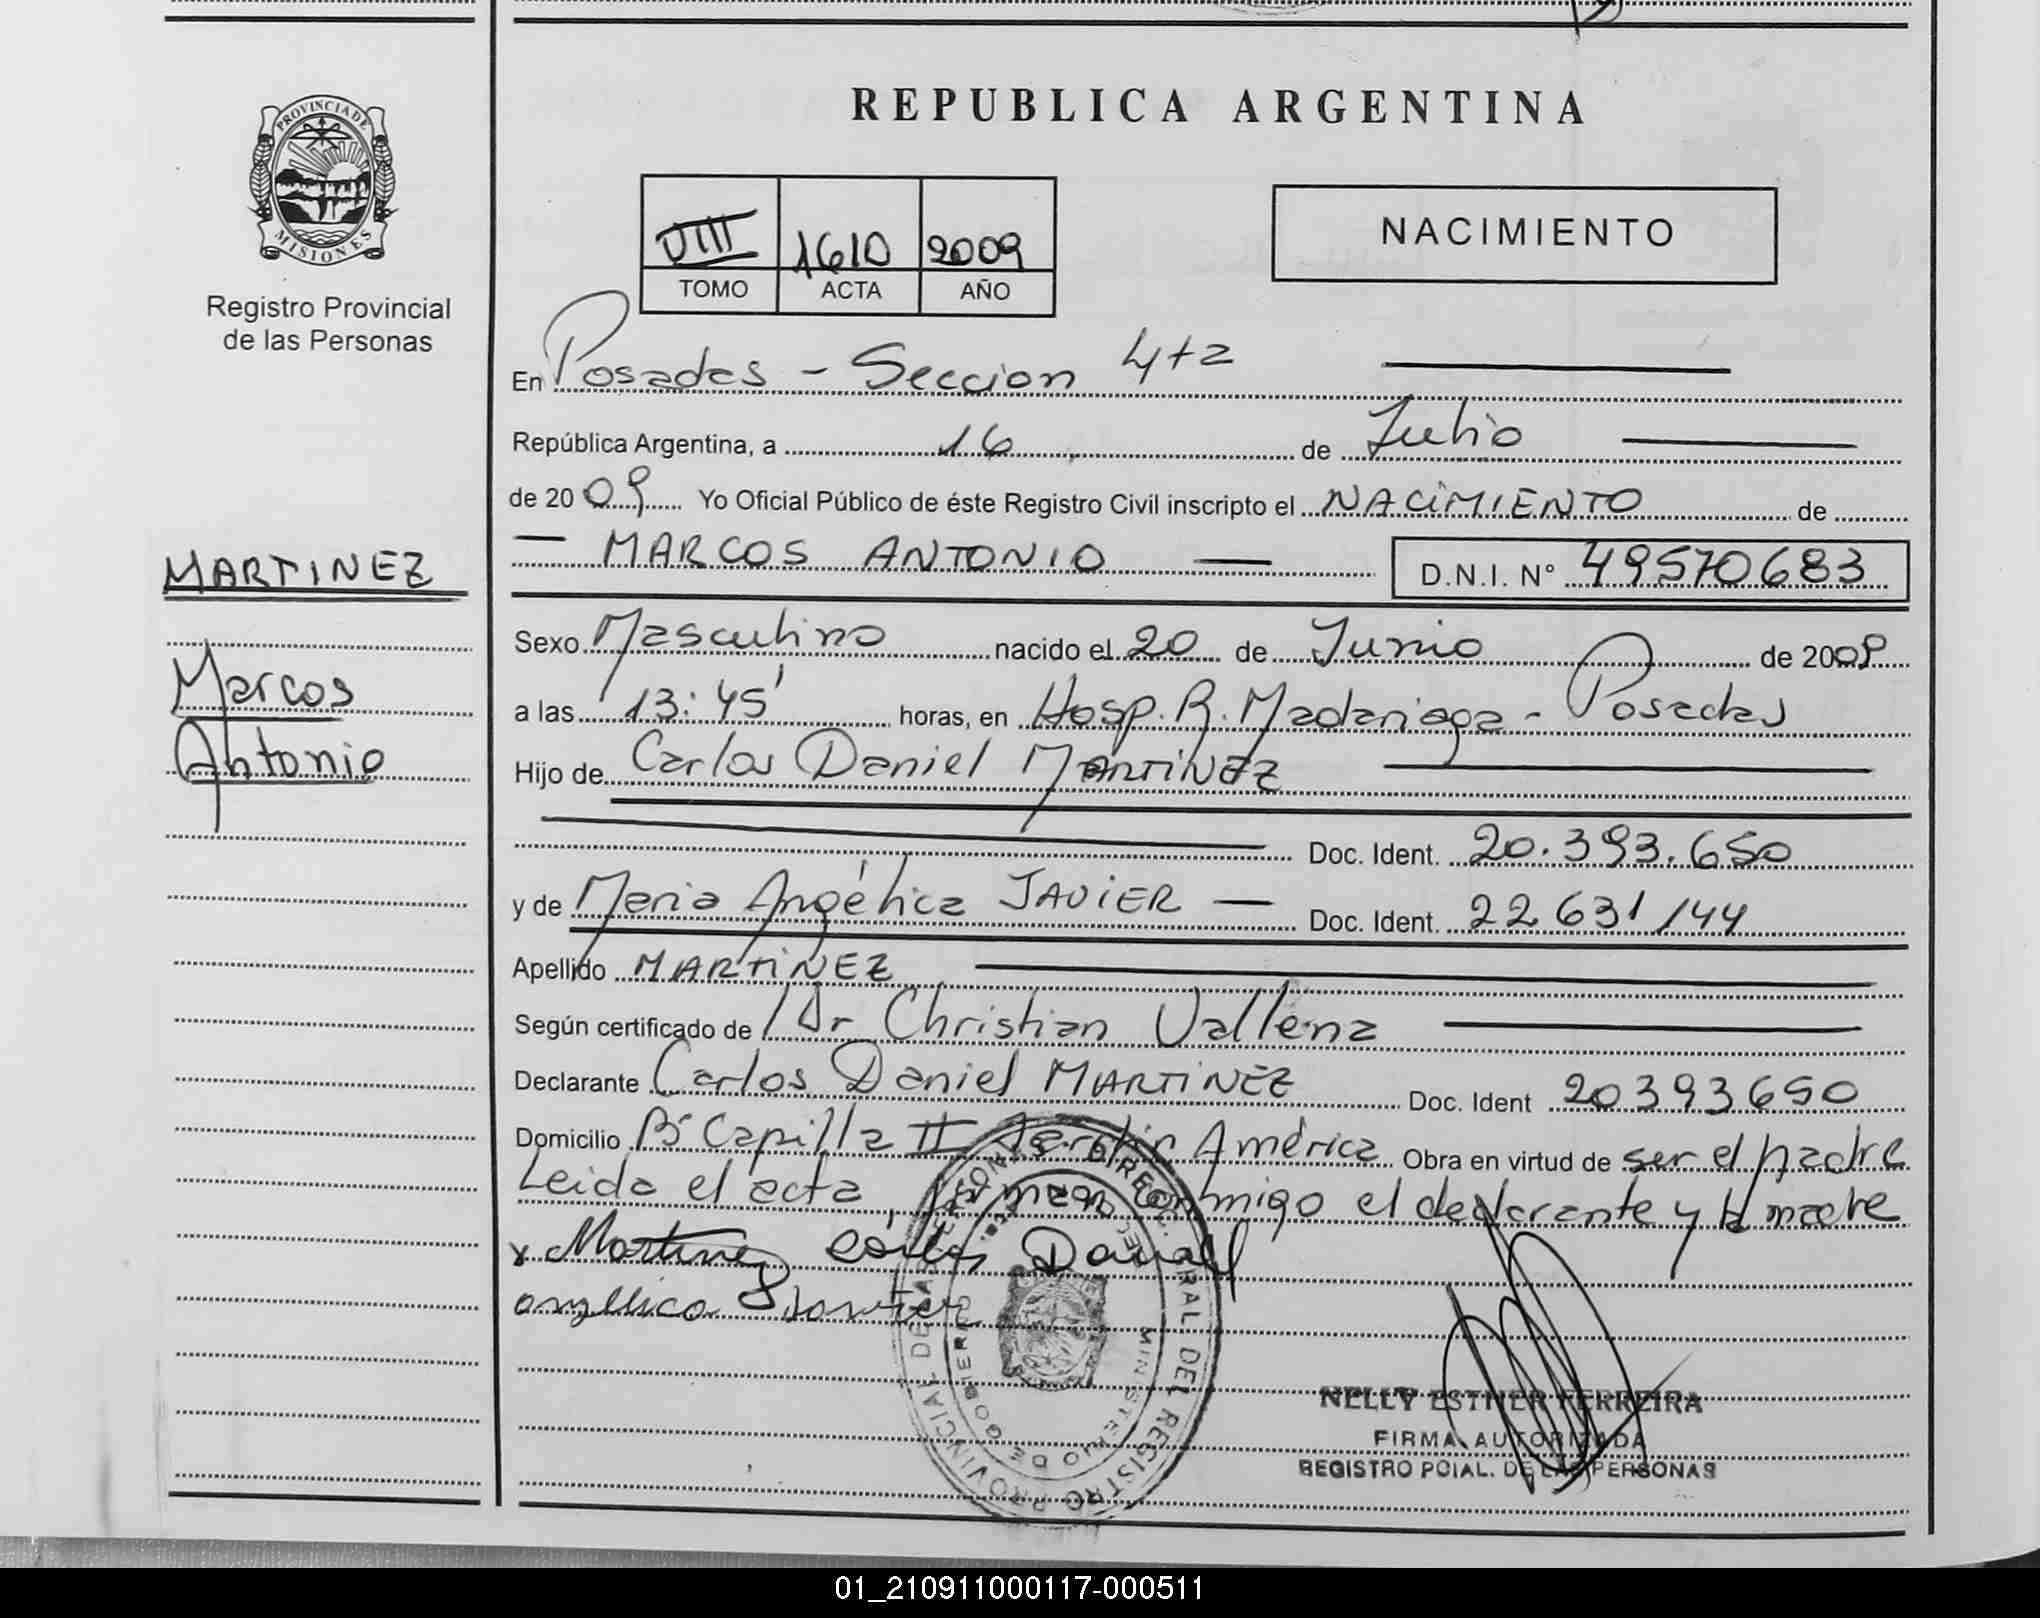 REPUBLICA ARGENTINA
PROVINCIA DE MISIONES
Registro Provincial
de las Personas
VIII 1610 2009
TOMO ACTA AÑO
NACIMIENTO
En Posadas - Seccion 4ta
República Argentina, a 16 de Julio
de 20 09 Yo Oficial Público de éste Registro Civil inscripto el NACIMIENTO de
MARCOS ANTONIO D.N.I. N° 49570683
MARTINEZ
Marcos
Antonio
Sexo Masculino nacido el 20 de Junio de 2009
a las 13:45' horas, en Hosp. R. Madariaga - Posadas
Hijo de Carlos Daniel MARTINEZ
Doc. Ident. 20.393.650
y de Maria Angélica JAVIER Doc. Ident. 22 631 144
Apellido MARTINEZ
Según certificado de Dr Christian
Declarante Carlos Daniel MARTINEZ Doc. Ident 20393650
Domicilio Bº Capilla II América Obra en virtud de ser el padre
Leida el acta firman conmigo el declarante y la madre
x Martinez Carlos Daniel
angelica Javier
DIRECC. GRAL DEL REGISTRO PROVINCIAL DE LAS PERSONAS
MINISTERIO DE GOBIERNO
NELLY ESTHER FERREIRA
FIRMA AUTORIZADA
REGISTRO PCIAL. DE LAS PERSONAS
01_210911000117-000511